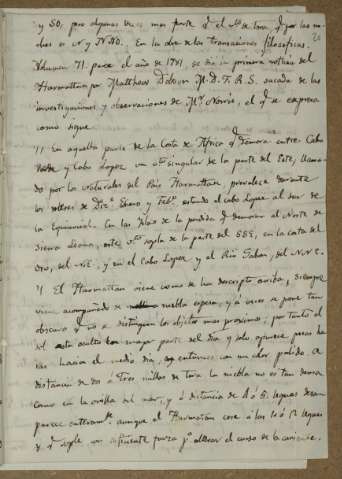 y SO, pero algunas veces mas parte q el de tierra q por las no
ches es N y NNO. En la obra de las transaciones filosoficas.
Volumen 71. para el año de 1781, se da la primera noticia del
Harmattan por Matthew Dobson M. D. F. R. S. sacada de las
investigaciones y observaciones de Mr Norris, el q se expresa
como sigue
" En aquella parte de la Costa de Africa q demora entre Cabo
Verde y Cabo Lopez un singular de la parte del Este, llama
do por los naturales del Pais Harmattan, prevalece durante
los meses de Dizre Enero y Febo estando el cabo Lopez al sur de
la Equinocial. En las Islas de la perdida q demoran al Norte de
Sierra Leona, este sopla de la parte del ESE, en la costa del
Oro, del NE, y en el Cabo Lopez y el Rio Gabon, del NNE.
" El Harmattan viene como se ha descripto arriba, siempre
viene acompañado de niebla espesa, y á veces se pone tan
obscuro q no se distinguen los objetos mas proximos; por tanto el
sol esta oculto la mayor parte del dia y solo aparece pocas ho
ras hacia el medio dia, y entonces con un color palido. A
distancia de dos á tres millas de tierra la niebla no es tan densa
como en la orilla del mar, y á distancia de 4 ó 5 leguas desa
parece enteramte aunque el Harmattan corre á los 10 ó 12 leguas
y sople con suficiente fuerza pa alterar el curso de la corriente.